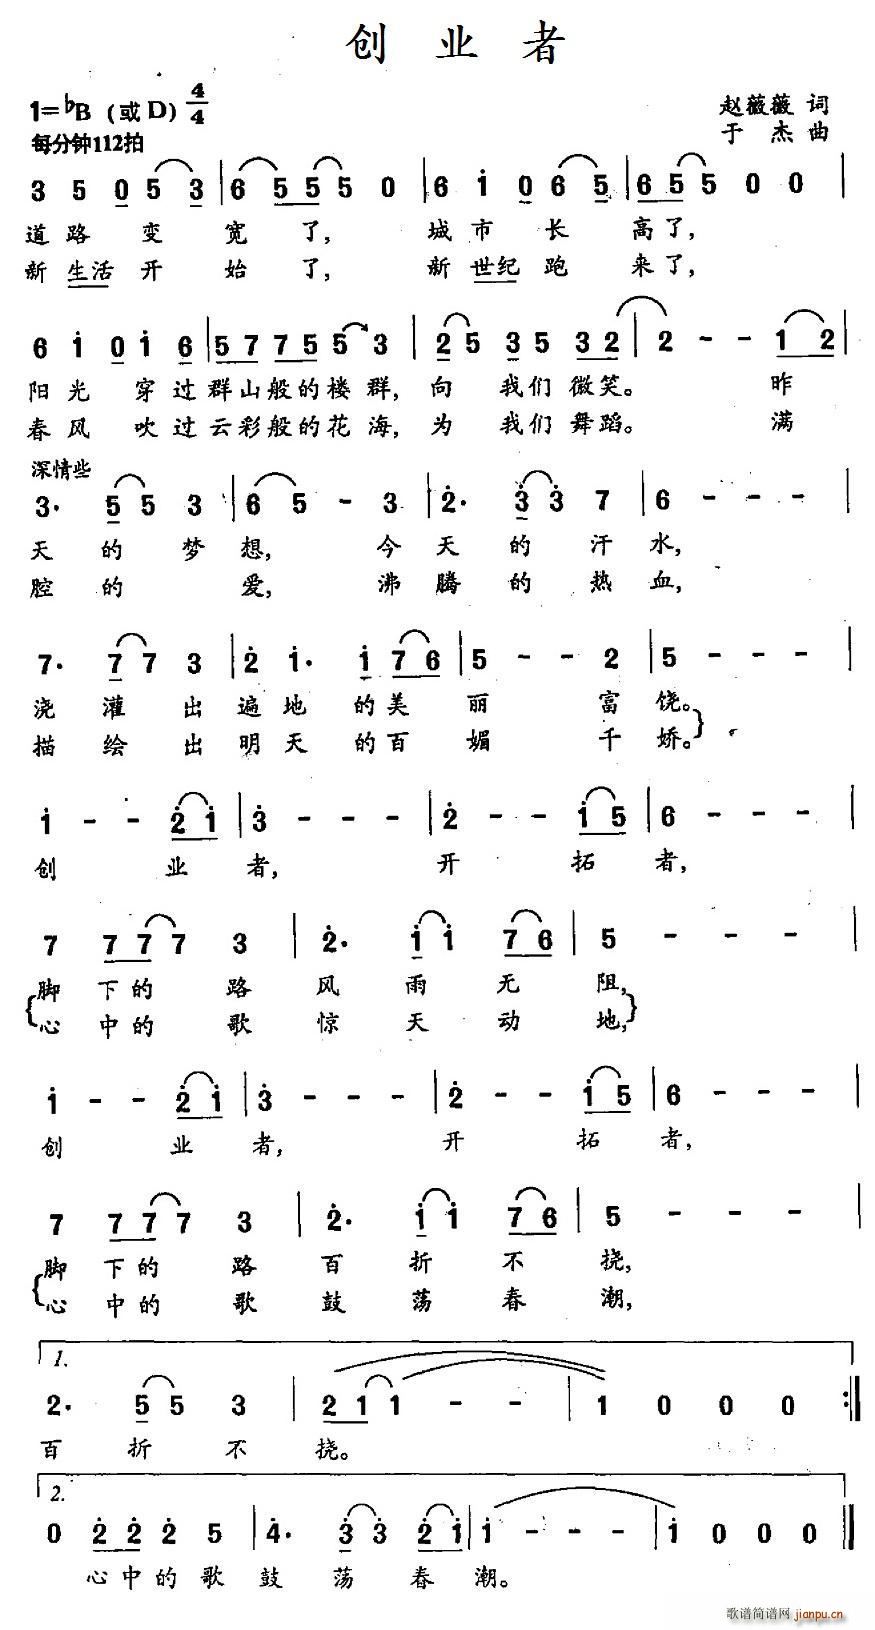 创 业 者
1=♭B（或 D）4/4
赵薇薇 词
每分钟112拍
于 杰 曲
3 5 0 5 3 | 6 5 5 5 0 | 6 i 0 6 5 | 6 5 5 0 0 |
道 路 变 宽 了, 城 市 长 高 了,
新 生活 开 始 了, 新 世纪 跑 来 了,
6 i 0 i 6 | 5 7 7 5 5 3 | 2 5 3 5 3 2 | 2 - - 1 2 |
阳 光 穿 过 群 山 般 的 楼 群, 向 我 们 微 笑。 昨
春 风 吹 过 云 彩 般 的 花 海, 为 我 们 舞 蹈。 满
深情些
3· 5 5 3 | 6 5 - 3 | 2̇· 3̇ 3̇ 7 | 6 - - - |
天 的 梦 想, 今 天 的 汗 水,
腔 的 爱, 沸 腾 的 热 血,
7· 7 7 3 | 2̇ i· i 7 6 | 5 - - 2 | 5 - - - |
浇 灌 出 遍 地 的 美 丽 富 饶。
描 绘 出 明 天 的 百 媚 千 娇。
i - - 2̇ i | 3̇ - - - | 2̇ - - i 5 | 6 - - - |
创 业 者, 开 拓 者,
7 7 7 7 3 | 2̇· i i 7 6 | 5 - - - |
脚 下 的 路 风 雨 无 阻,
心 中 的 歌 惊 天 动 地,
i - - 2̇ i | 3̇ - - - | 2̇ - - i 5 | 6 - - - |
创 业 者, 开 拓 者,
7 7 7 7 3 | 2̇· i i 7 6 | 5 - - - |
脚 下 的 路 百 折 不 挠,
心 中 的 歌 鼓 荡 春 潮,
1.
2· 5 5 3 | 2 1 1 - - | 1 0 0 0 :‖
百 折 不 挠。
2.
0 2̇ 2̇ 2̇ 5 | 4̇· 3̇ 3̇ 2̇ i | i - - - | i 0 0 0 ‖
心 中 的 歌 鼓 荡 春 潮。
歌谱简谱网 jianpu.cn